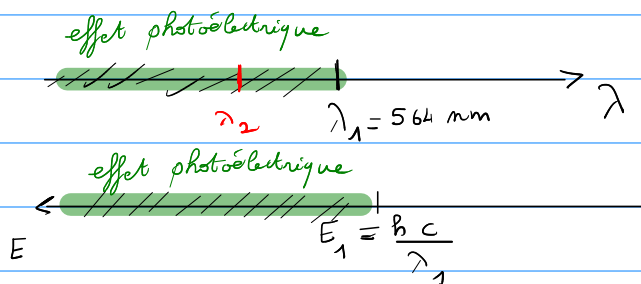 effet photoélectrique
λ
λ₂
λ₁ = 564 nm
effet photoélectrique
E
E₁ = h c / λ₁